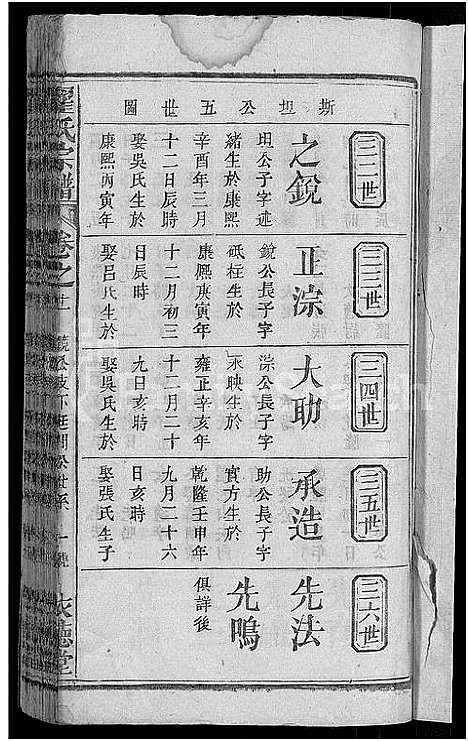 斯坦公五世圖
三二世
之銳
珇公子字述
緒生於康熙
辛酉年三月
十二日辰時
娶吳氏生於
康熙丙寅年
三三世
正淙
銳公長子字
砥柱生於
康熙庚寅年
十二月初三
日辰時
娶呂氏生於
三四世
大助
淙公長子字
永映生於
雍正辛亥年
十二月二十
九日亥時
娶吳氏生於
三五世
承造
助公長子字
實方生於
乾隆壬申年
九月二十六
日亥時
娶張氏生子
三六世
先法
先鳴
俱詳後
氏宗譜
卷之廿
公世系
敘德堂